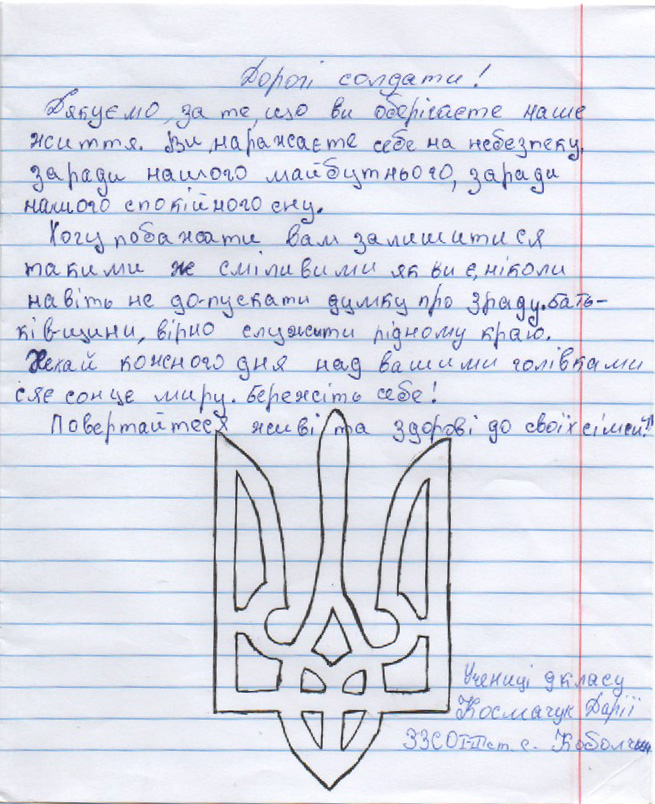 Дорогі солдати!
Дякуємо, за те, що ви оберігаєте наше
життя. Ви, наражаєте себе на небезпеку,
заради нашого майбутнього, заради
нашого спокійного сну.
Хочу побажати вам залишитися
такими ж сміливими як ви є, ніколи
навіть не до-пускати думку про зраду.бать-
ків-щини, вірно служити рідному краю.
Нехай кожного дня над вашими голівками
сяє сонце миру. Бережіть себе!
Повертайтеся живі та здорові до своїх сімей!
Учениці 9 класу
Космачук Дарії
ЗЗСО І-ІІІ ст. с.